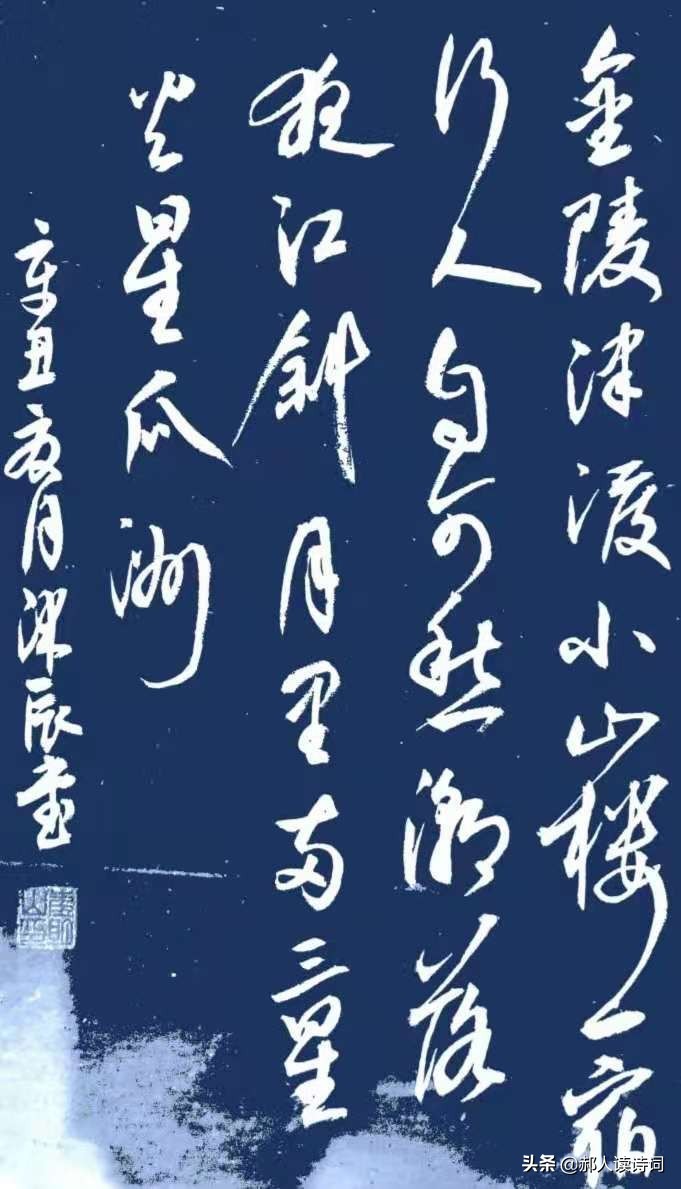 金陵津渡小山楼一宿
行人自可愁潮落
夜江斜月里两三星
火星瓜洲
辛丑夏月梁辰书
头条 @郝人读诗词